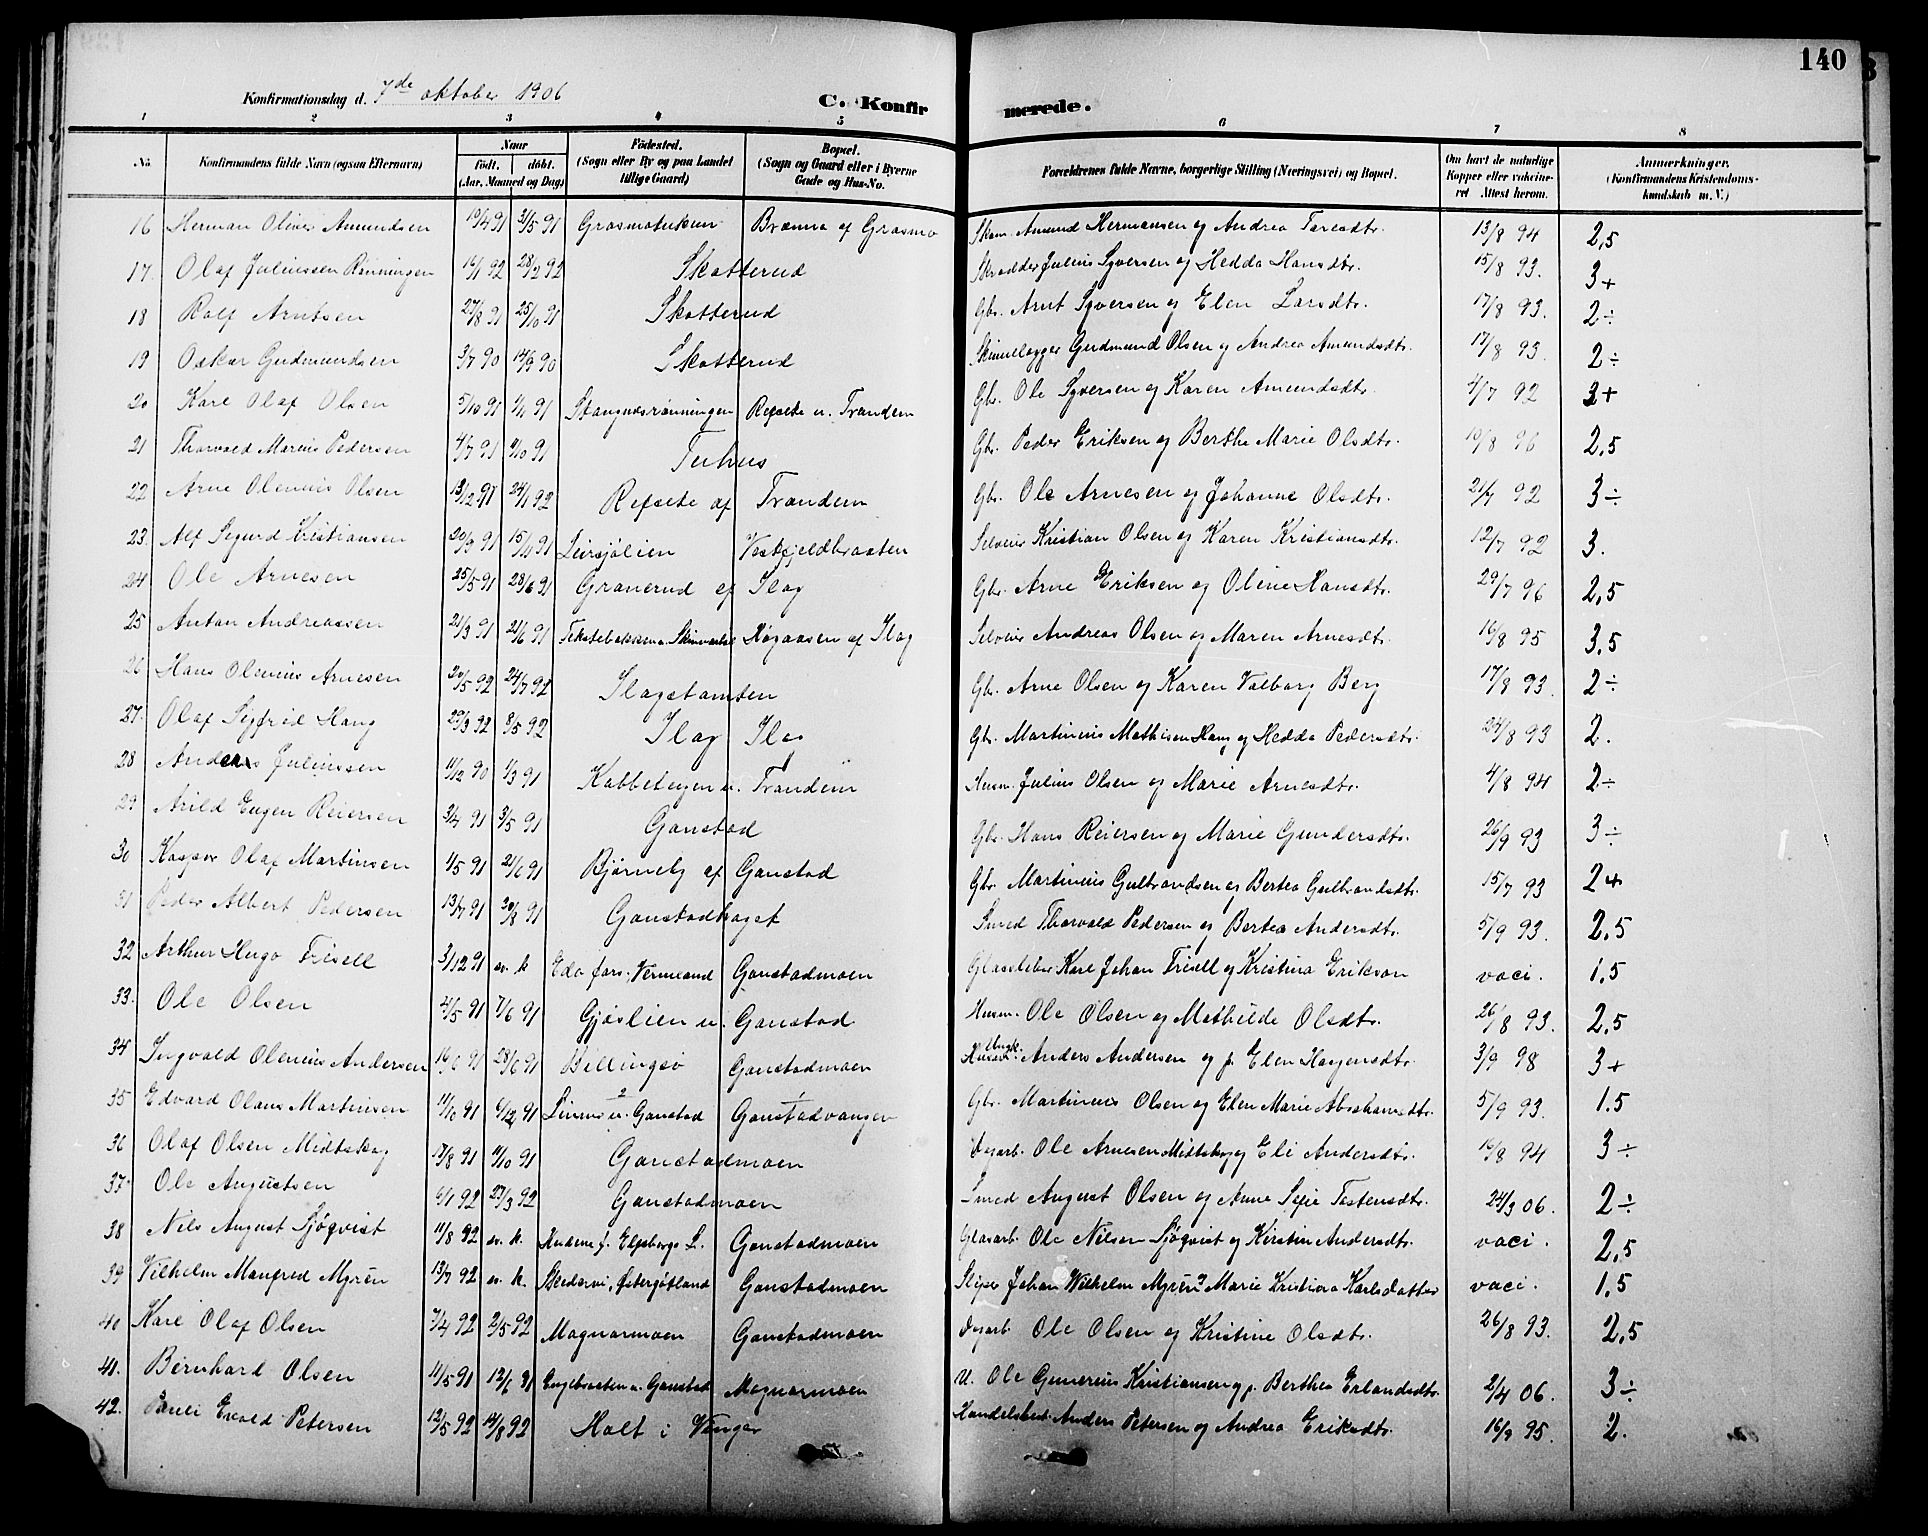 140
Konfirmationsdag d. 7de oktober 1906 C. Konfirmerede.
1 2 3 4 5 6 7 8
No. Konfirmandens fulde Navn (ogsaa Efternavn) Naar født. døbt. (Aar, Maaned og Dag) Fødested. (Sogn eller By og paa Landet tillige Gaard) Bopæl. (Sogn og Gaard eller i Byerne Gade og Hus-No. Forældrenes fulde Navne, borgerlige Stilling (Næringsvei) og Bopæl. Om havt de naturlige Kopper eller vaccineret Attest herom. Anmærkninger. (Konfirmandens Kristendomskundskab m. V.)
16 Herman Oliver Amundsen 19/4 91 31/5 91 Grasmo Brænna af Grasmo Amund Hermansen og Andrea 13/8 94 2,5
17. Olaf Juliussen Rønningen 16/1 92 28/2 92 Skotterud Skrædder Julius Syversen og Hedda Hansdtr. 15/8 93. 3+
18 Rolf Arntsen 27/8 91 25/10 91 Skotterud Gbr. Arnt Syversen og Elen Larsdtr. 17/8 93. 2÷
19 Oskar Gudmundsen 3/7 90 14/9 90 Skotterud Gudmund Olsen og Andrea Amundsdtr. 17/8 93. 2÷
20 Karl Olaf Olsen 5/10 91 1/11 91 Stangnæsrønningen Refsete u. Trandem Gbr. Ole Syversen og Karen Amundsdtr. 4/7 92 3+
21 Thorvald Marius Pedersen 4/7 91 4/10 91 Tuhus Gbr. Peder Eriksen og Berthe Marie Olsdtr. 10/8 96 2,5
22 Arne Olenius Olsen 13/12 91 24/1 92 Refsete af Trandem Gbr. Ole Arnesen og Johanne Olsdtr. 21/7 92 3÷
23 Alf Sigurd Kristiansen 20/3 91 15/4 91 Leirsjølien Vestfjeldbraaten Selveier Kristian Olsen og Karen Kristiansdtr. 12/7 92 3.
24 Ole Arnesen 25/5 91 28/6 91 Granerud af Ilag Gbr. Arne Eriksen og Oline Hansdtr. 29/7 96 2,5
25 Anton Andreassen 21/3 91 21/6 91 Køgaasen af Ilag Selveier Andreas Olsen og Maren Arnesdtr. 16/8 95 3,5
26 Hans Olenius Arnesen 20/5 92 24/7 92 Ilagstomten Gbr. Arne Olsen og Karen Valborg Berg 17/8 93. 2÷
27. Olaf Sigfrid Haug 29/3 92 8/5 92 Ilag Ilag Gbr. Martinius Mathisen Haug og Hedda Pedersdtr. 24/8 93 2.
28 Anders Juliussen 11/12 90 1/3 91 Kabbeteigen u. Trandem Husm. Julius Olsen og Marie Arnesdtr. 4/8 94 2÷
29 Arild Eugen Reiersen 3/4 91 3/5 91 Gaustad Gbr. Hans Reiersen og Marie Gundersdtr. 26/9 93 3÷
30 Kasper Olaf Martinsen 1/5 91 21/6 91 Bjørneby af Gaustad Gbr. Martinius Gulbrandsen og Bertea Gulbrandsdtr. 15/7 93 2+
31 Peder Albert Pedersen 13/7 91 30/8 91 Gaustadhaget Smed Thorvald Pedersen og Bertea Andersdtr. 5/9 93. 2,5
32 Arthur Hugo Frisell 3/12 91 sv. k Eda fors, Vermland Gaustadmoen Glassleber Karl Johan Frisell og Kristina Erikson vaci. 1,5
33. Ole Olsen 4/5 91 7/6 91 Gjøslien u. Gaustad Husm. Ole Olsen og Mathilde Olsdtr. 26/8 93. 2,5
34 Ingvald Olenius Andersen 16/6 91 28/6 91 Billingsø Gaustadmoen Ungk. Anders Andersen og p. Elen Haagensdtr. 3/9 98 3+
35 Edvard Olaus Martinsen 11/10 91 6/12 91 u. Gaustad Gaustadvangen Gbr. Martinius Olsen og Elen Marie Abrahamsdtr. 5/9 93. 1.5
36 Olaf Olsen Midtskog 17/8 91 11/10 91 Gaustadmoen Dagarb. Ole Arnesen Midtskog og Eli Andersdtr. 16/8 94 3÷
37. Ole Augustsen 6/1 92 27/3 92 Gaustadmoen Smed August Olsen og Anne Sofie Tostensdtr. 24/3 06. 2÷
38 Nils August Sjøqvist 11/8 92 sv. k. Elfsborgs L. Gaustadmoen Glasarb. Ole Nilsen Sjøqvist og Kirstin Andersdtr. vaci. 2,5
39 Vilhelm Manfred Myrén 13/7 92 sv. k. Skedevi, Østergøtland Gaustadmoen Sliper Johan Wilhelm Myrén og Marie Kristina Karlsdatter vaci. 1,5
40 Karl Olaf Olsen 7/4 92 2/5 92 Magnormoen Gaustadmoen Dagarb. Ole Olsen og Kristine Olsdtr. 26/8 93. 2,5
41. Bernhard Olsen 11/5 91 12/6 91 Engebraaten u. Gaustad Magnormoen U. Ole Gunerius Kristiansen og p. Berthea Erlandsdtr. 2/4 06. 3÷
42. Evald Petersen 12/5 92 14/8 92 Holt i Vinger Handelsbest. Anders Petersen og Andrea Eriksdtr. 16/9 95. 2.